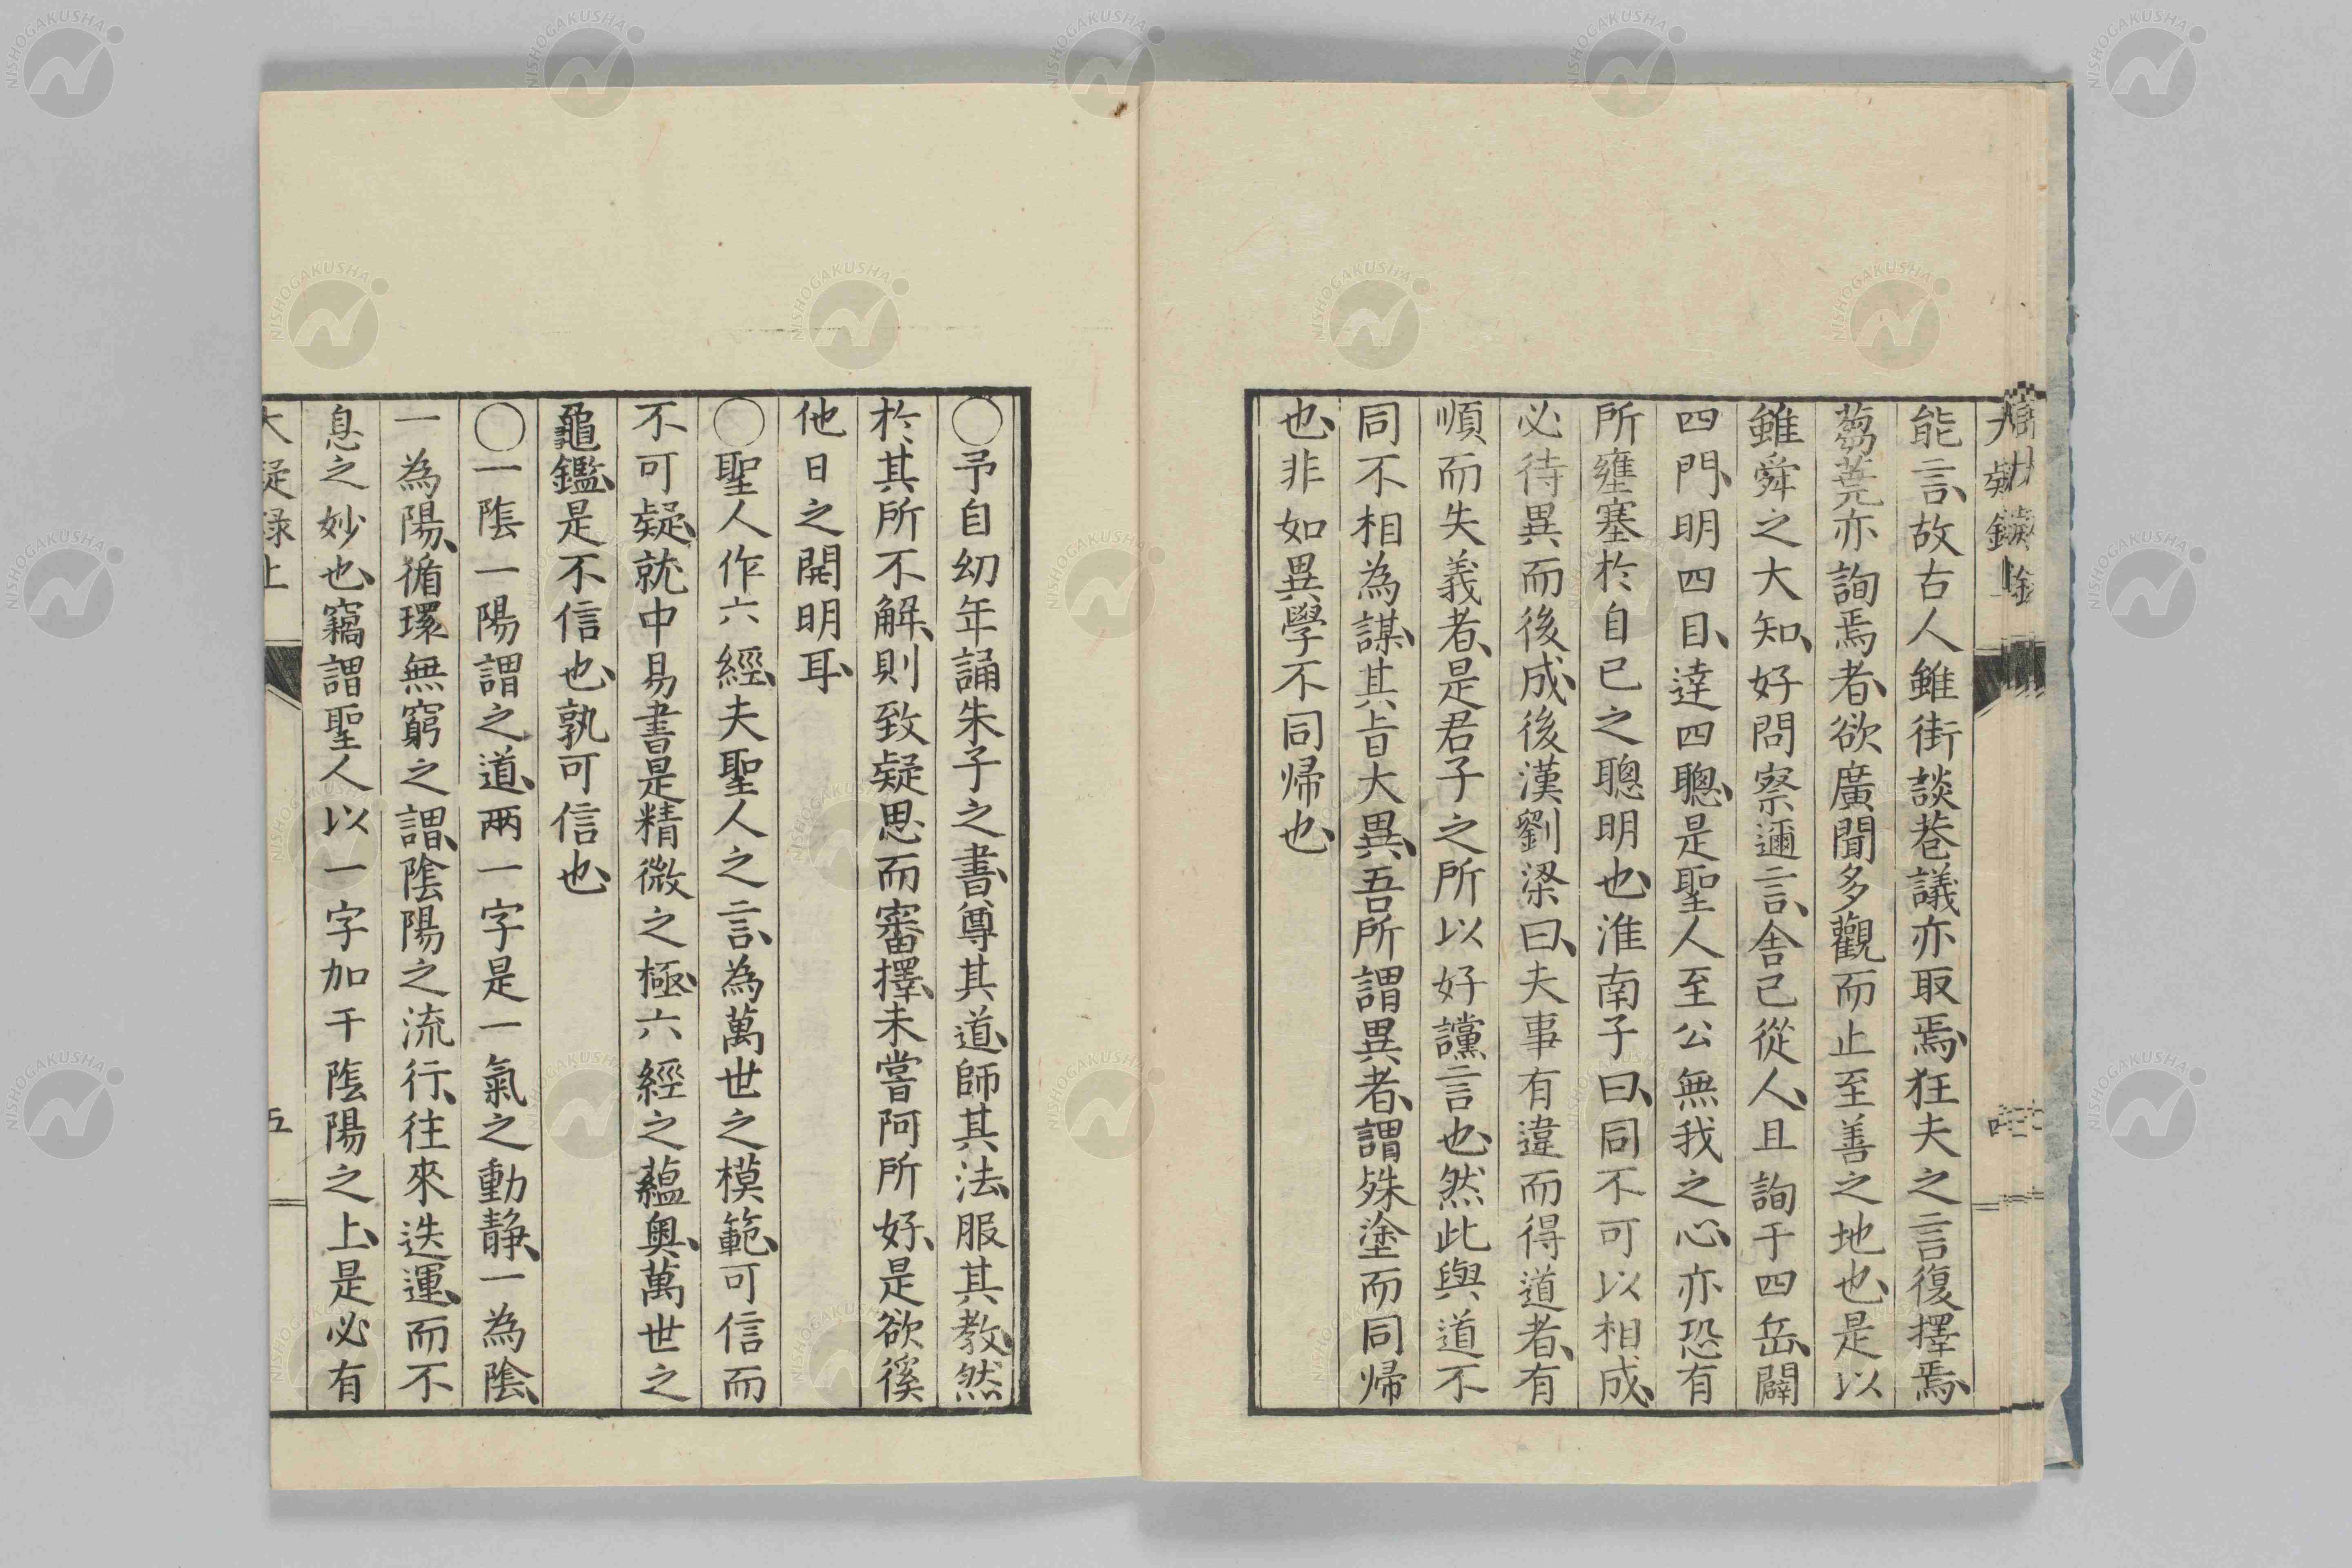 能言、故古人雖街談巷議亦取焉、狂夫之言復擇焉、
蒭蕘亦詢焉者、欲廣聞多觀而止至善之地也、是以
雖舜之大知、好問察邇言、舍己從人、且詢于四岳、闢
四門、明四目、達四聰、是聖人至公無我之心、亦恐有
所壅塞於自已之聰明也、淮南子曰、同不可以相成、
必待異而後成、後漢劉梁曰、夫事有違而得道者、有
順而失義者、是君子之所以好讜言也、然此與道不
同不相為謀、其旨大異、吾所謂異者、謂殊塗而同帰
也、非如異學不同帰也、
〇予自幼年誦朱子之書、尊其道、師其法、服其教、然
於、其所不解、則致疑思而審擇、未嘗阿所好、是欲徯
他日之開明耳、
〇聖人作六經、夫聖人之言、為萬世之模範、可信而
不可疑、就中易書是精微之極、六經之蘊奧、萬世之
龜鑑、是不信也、孰可信也、
〇一陰一陽謂之道、兩一字是一氣之動靜、一為陰、
一為陽、循環無窮之謂、陰陽之流行、往來迭運、而不
息之妙也、竊謂聖人以一字加于陰陽之上、是必有
大疑録上
五
NISHOGAKUSHA